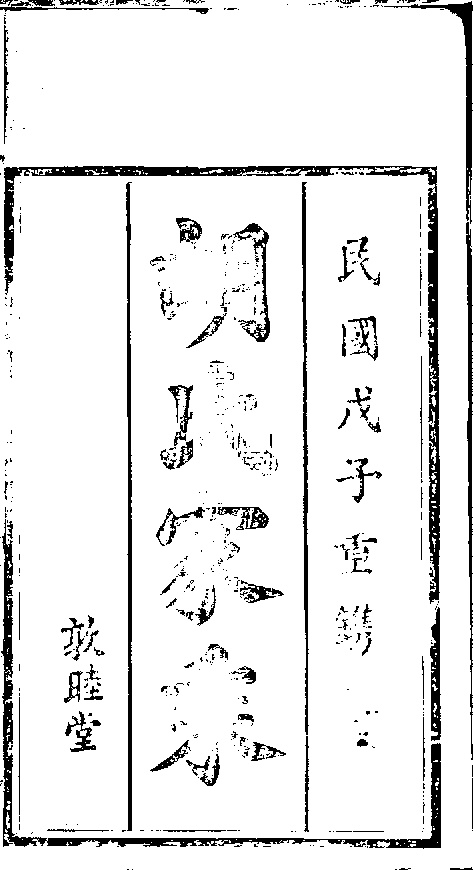 民國戊子重鐫
胡氏家乘
敦睦堂